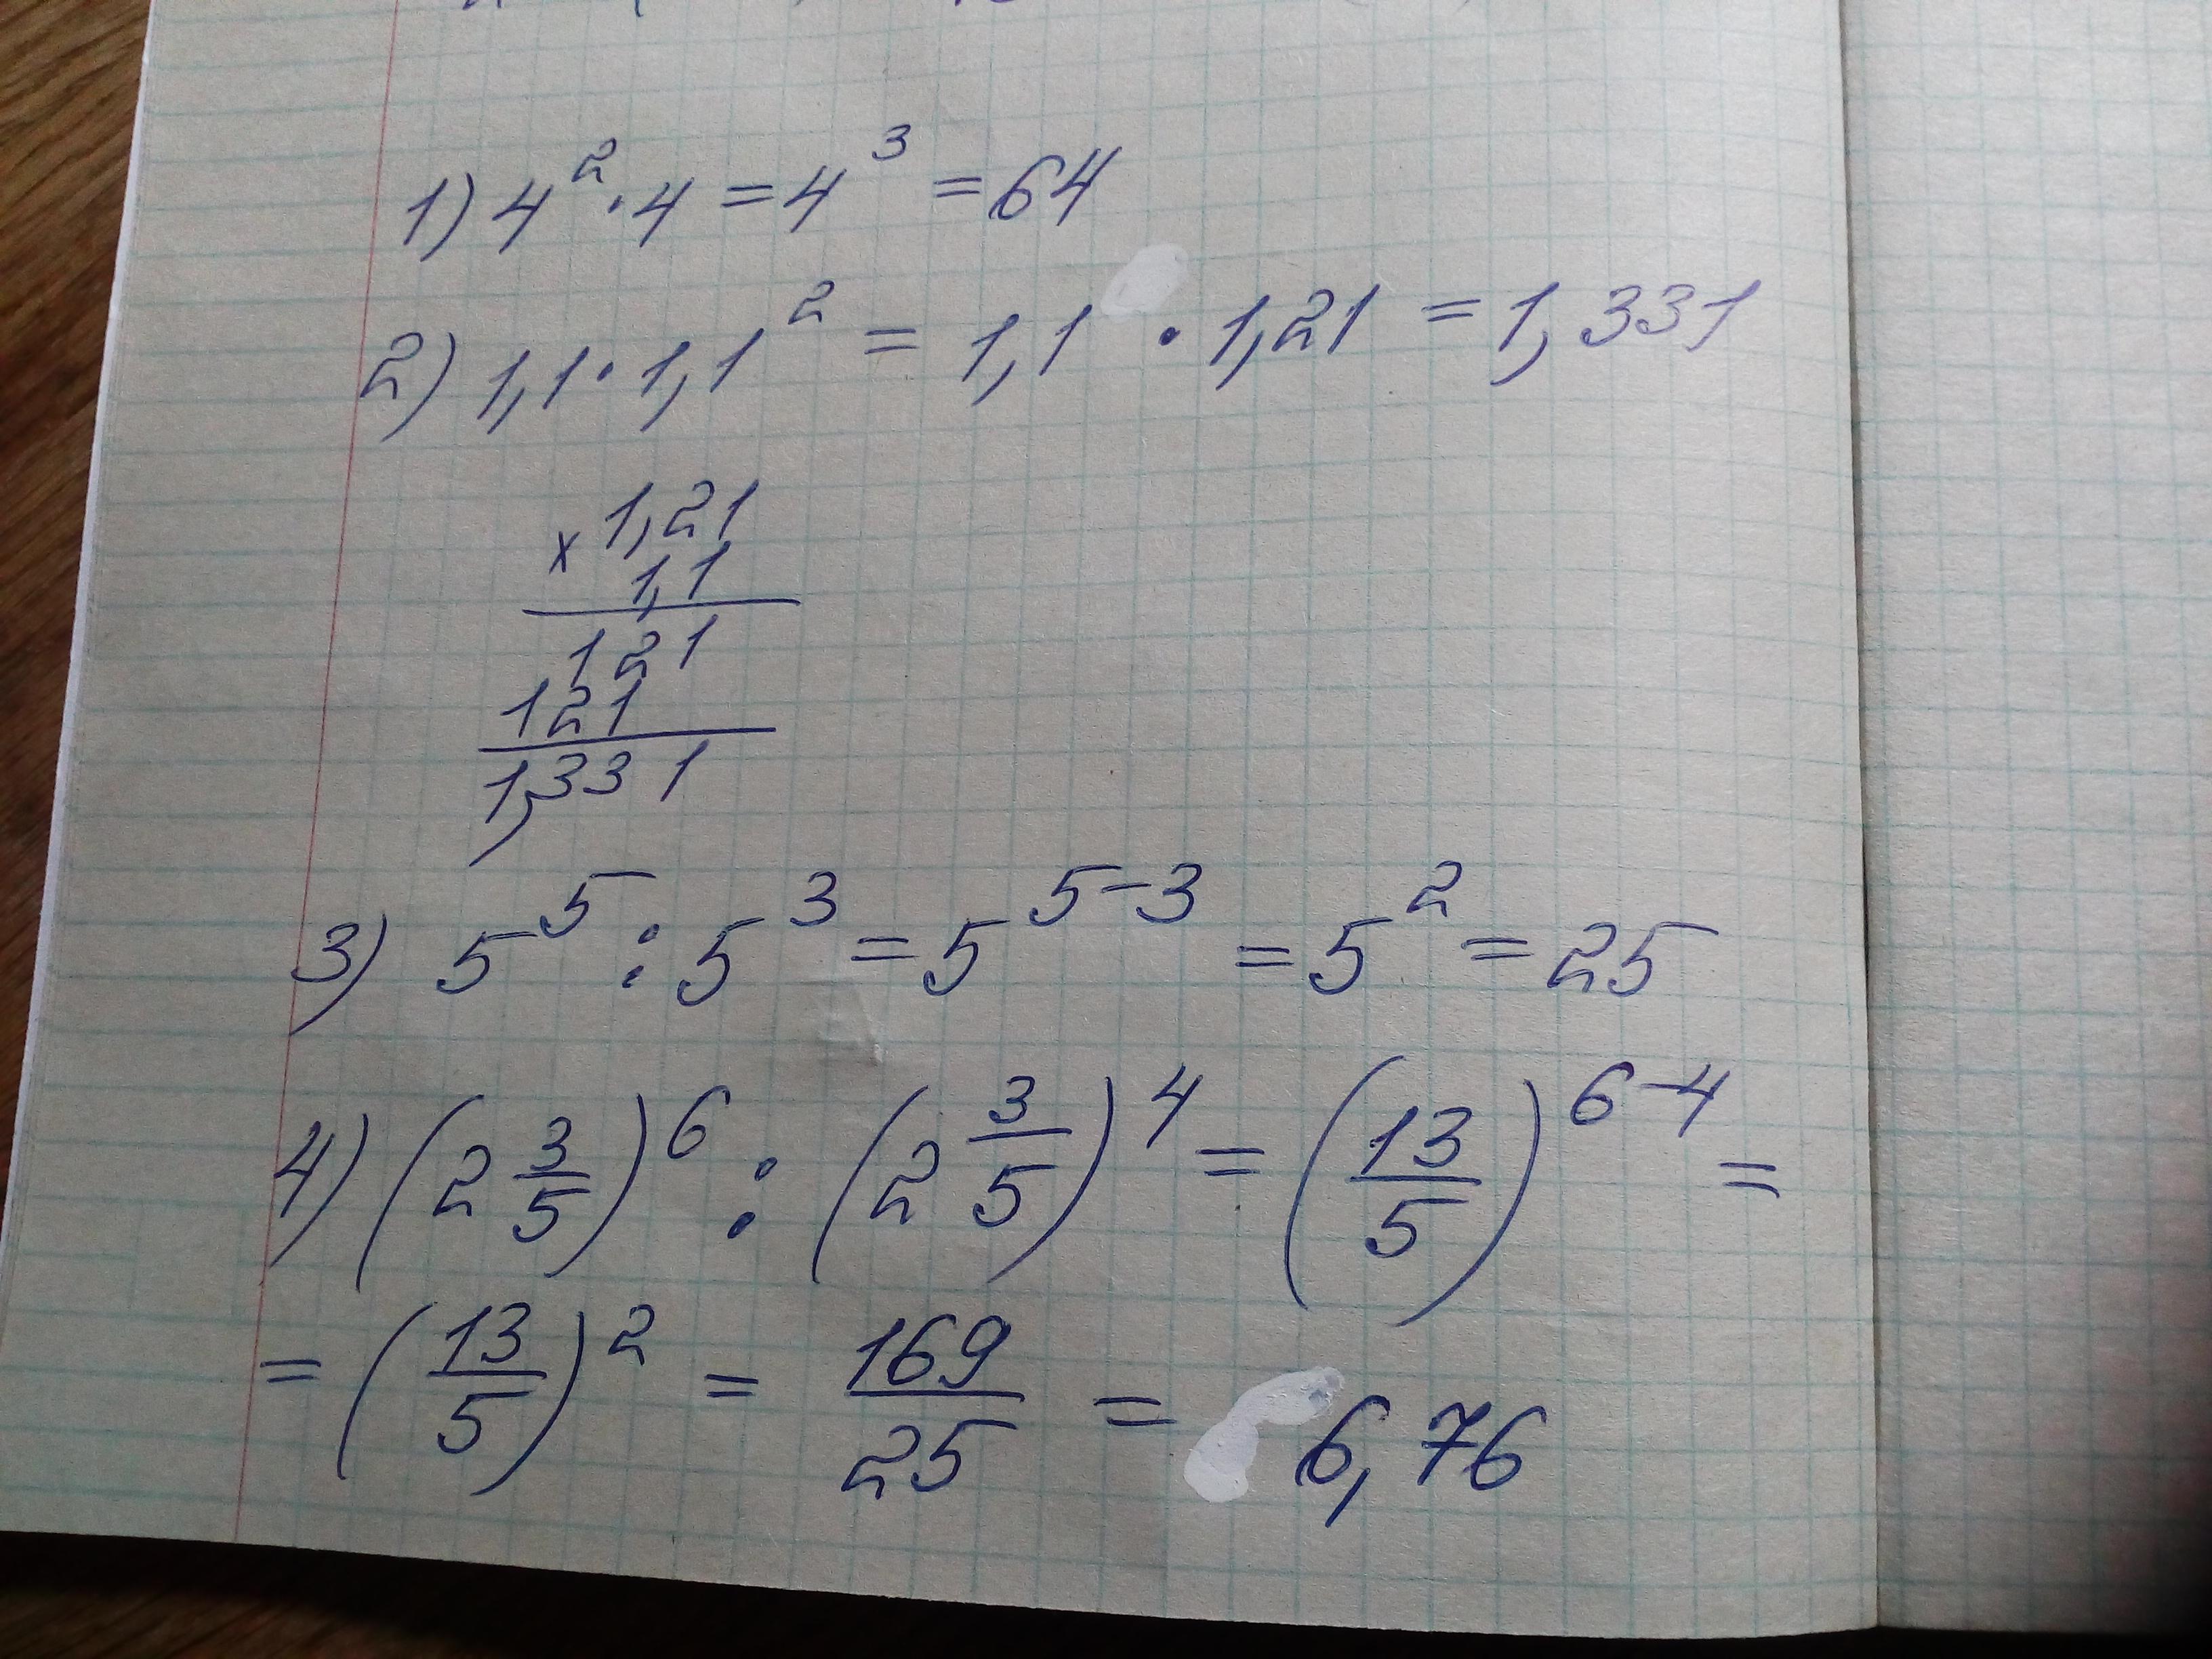 1) 4² · 4 = 4³ = 64
2) 1,1 · 1,1² = 1,1 · 1,21 = 1,331
x 1,21
1,1
121
121
1,331
3) 5⁵ : 5³ = 5⁵⁻³ = 5² = 25
4) (2 3/5)⁶ : (2 3/5)⁴ = (13/5)⁶⁻⁴ =
= (13/5)² = 169/25 = 6,76